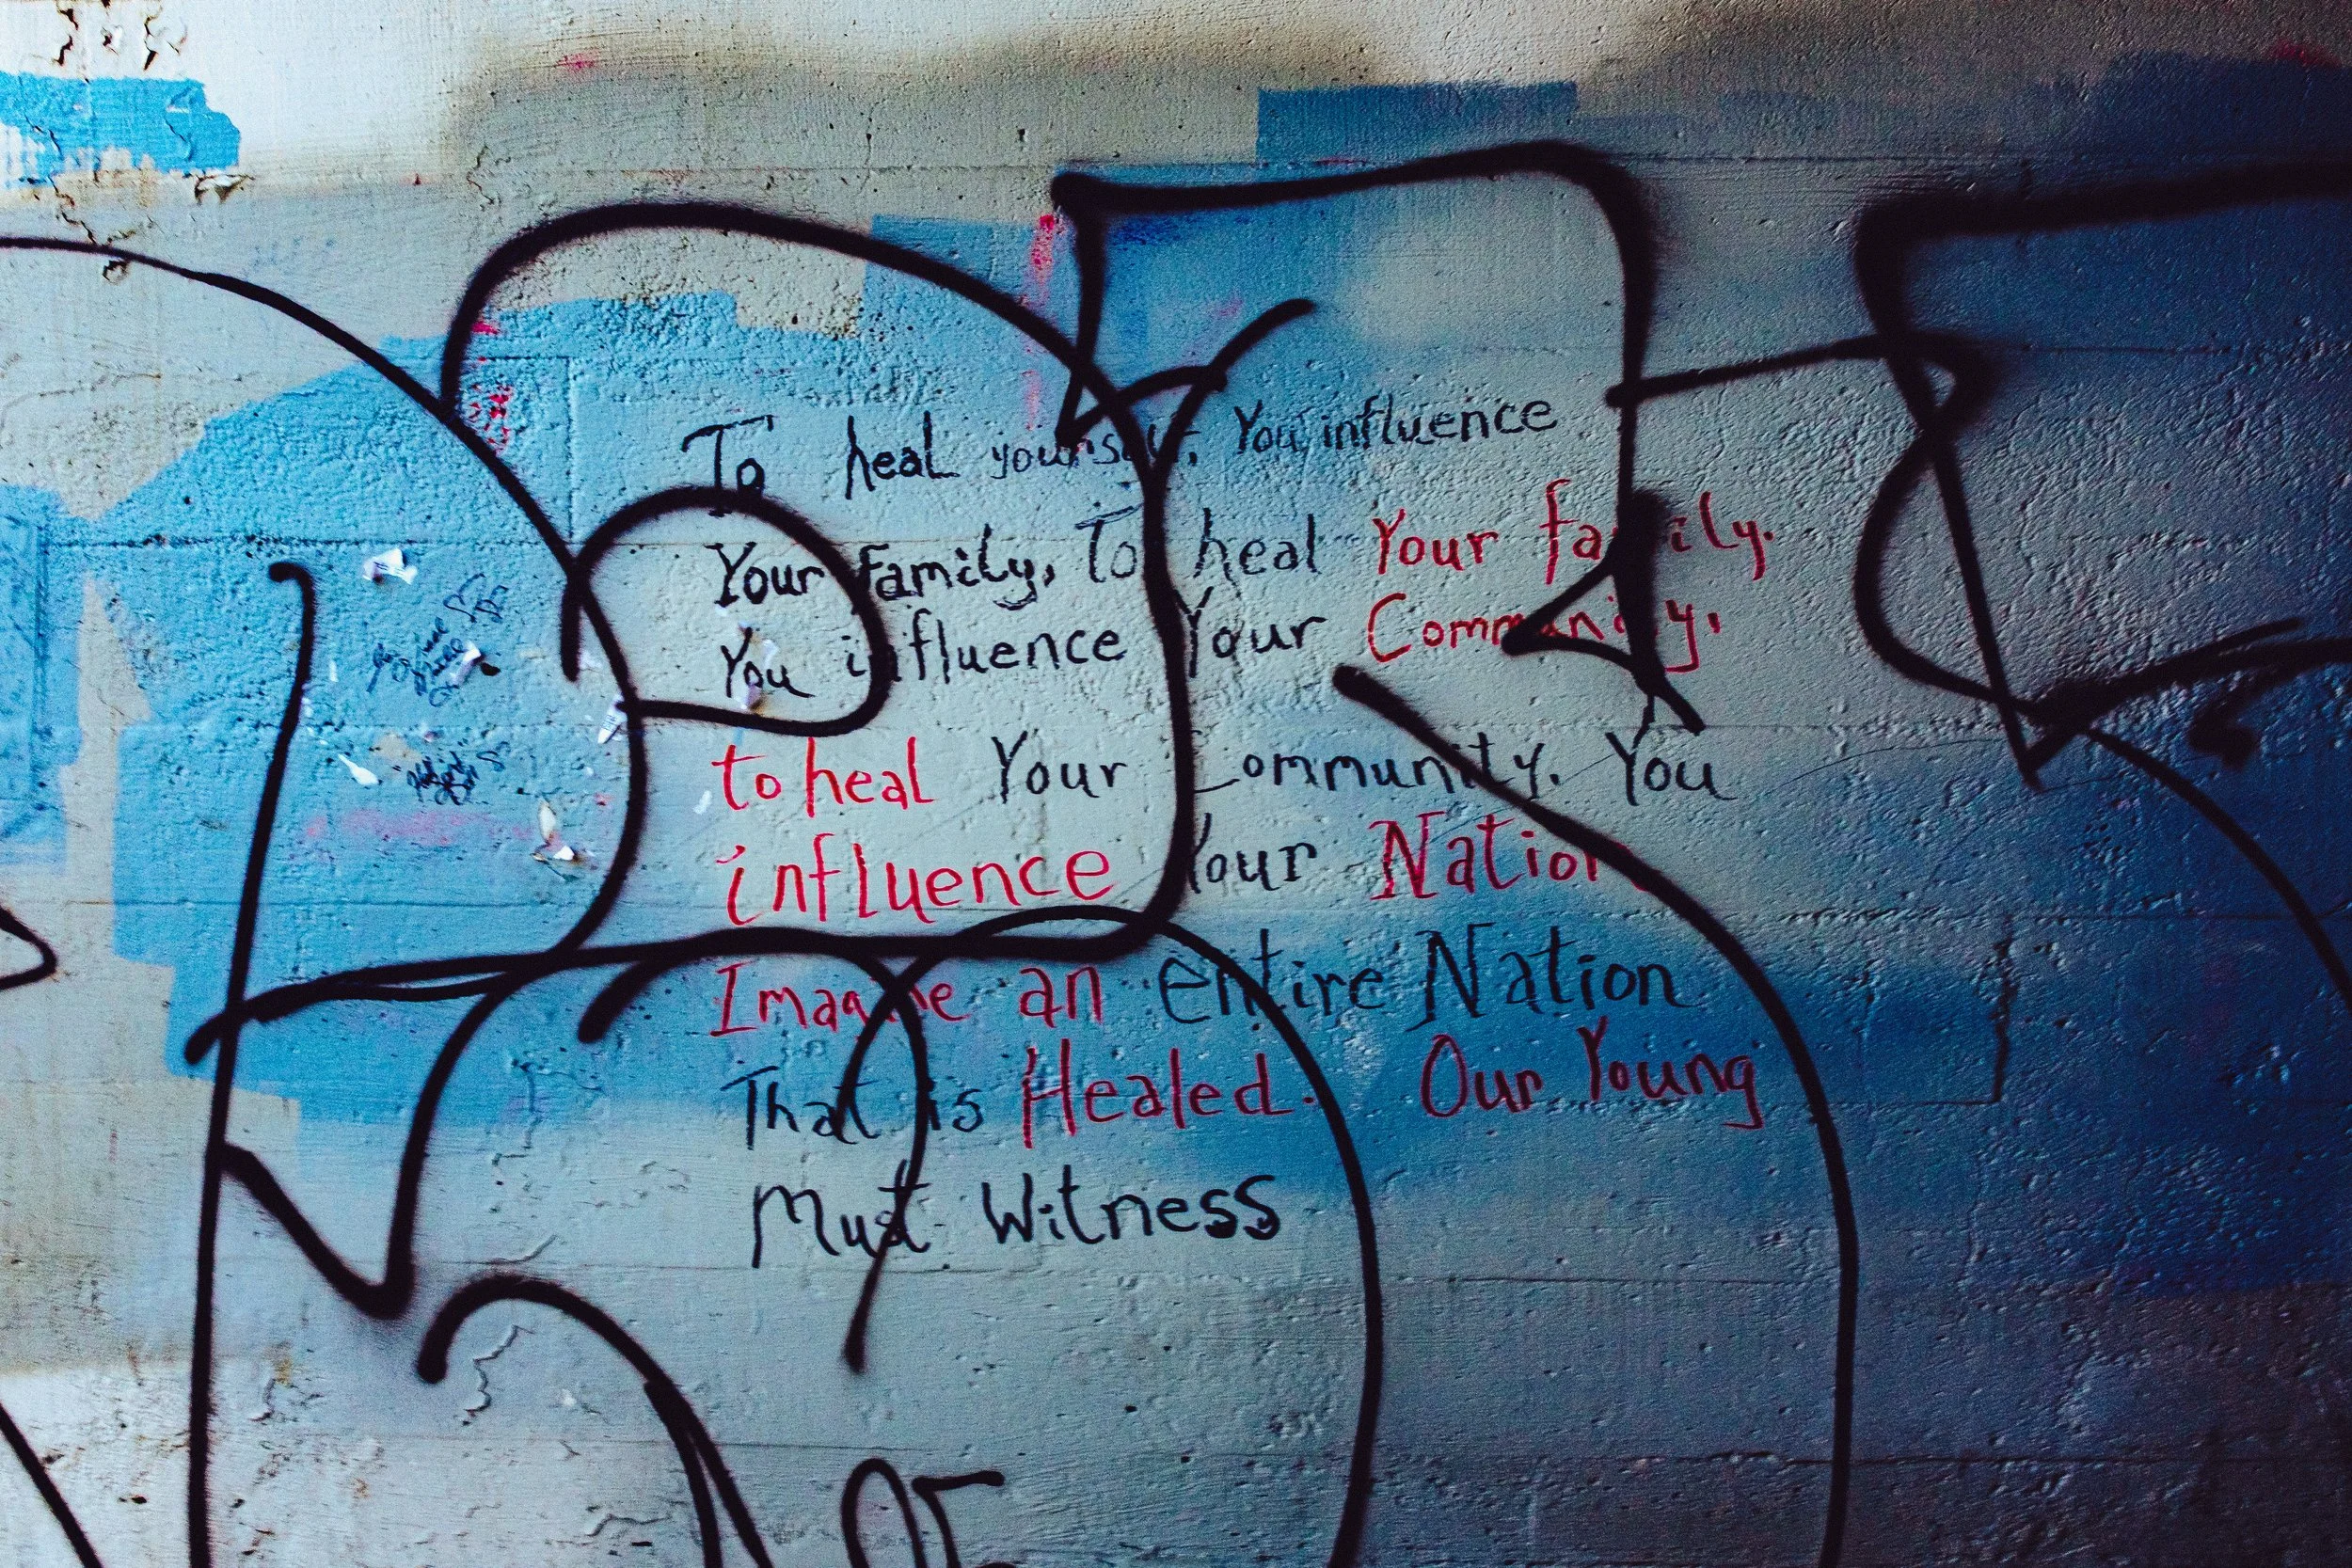 To heal yourself, You influence
Your family, To heal Your family.
You influence Your Community,
to heal Your Community. You
influence Your Nation.
Imagine an entire Nation
That is Healed. Our Young
Must Witness